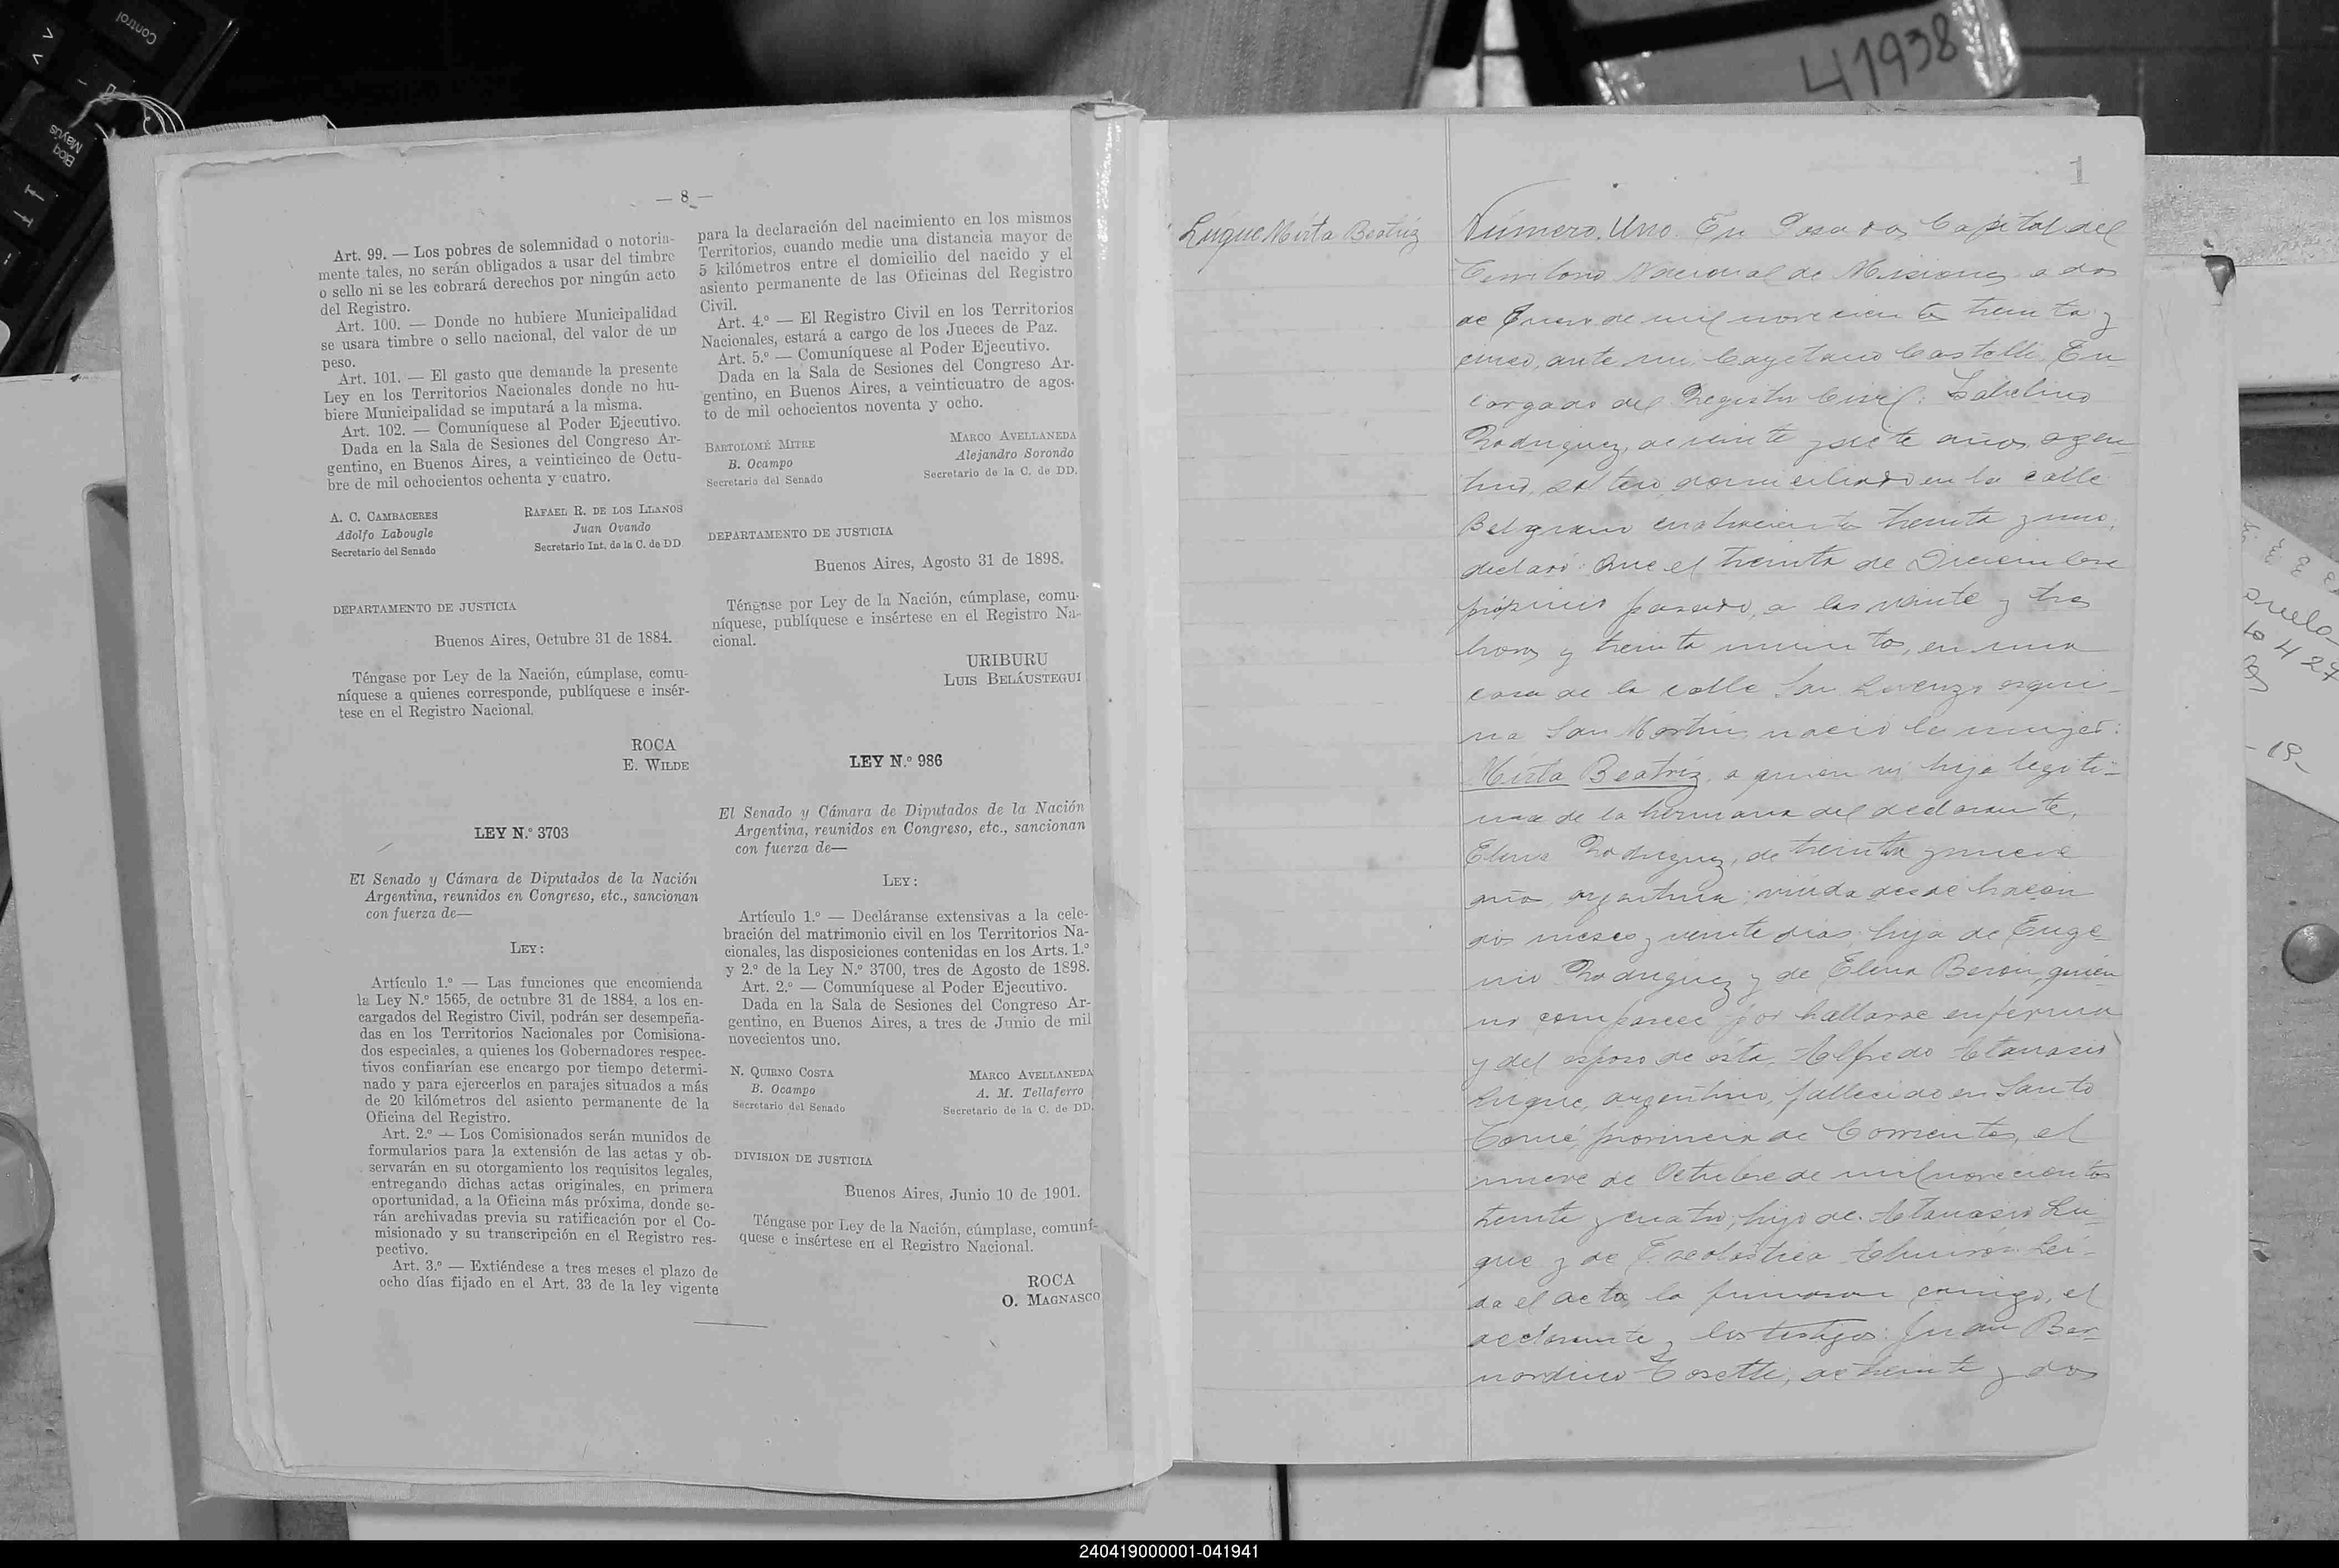 Control
Bloq
Mayús
41938
— 8 —
Art. 99. — Los pobres de solemnidad o notoria-
mente tales, no serán obligados a usar del timbre
o sello ni se les cobrará derechos por ningún acto
del Registro.
Art. 100. — Donde no hubiere Municipalidad
se usará timbre o sello nacional, del valor de un
peso.
Art. 101. — El gasto que demande la presente
Ley en los Territorios Nacionales donde no hu-
biere Municipalidad se imputará a la misma.
Art. 102. — Comuníquese al Poder Ejecutivo.
Dada en la Sala de Sesiones del Congreso Ar-
gentino, en Buenos Aires, a veinticinco de Octu-
bre de mil ochocientos ochenta y cuatro.
A. C. CAMBACERES
Adolfo Labougle
Secretario del Senado
RAFAEL R. DE LOS LLANOS
Juan Ovando
Secretario Int. de la C. de DD.
DEPARTAMENTO DE JUSTICIA
Buenos Aires, Octubre 31 de 1884.
Téngase por Ley de la Nación, cúmplase, comu-
níquese a quienes corresponde, publíquese e insér-
tese en el Registro Nacional.
ROCA
E. WILDE
LEY N.º 3703
El Senado y Cámara de Diputados de la Nación
Argentina, reunidos en Congreso, etc., sancionan
con fuerza de—
LEY:
Artículo 1.º — Las funciones que encomienda
la Ley N.º 1565, de octubre 31 de 1884, a los en-
cargados del Registro Civil, podrán ser desempeña-
das en los Territorios Nacionales por Comisiona-
dos especiales, a quienes los Gobernadores respec-
tivos confiarían ese encargo por tiempo determi-
nado y para ejercerlos en parajes situados a más
de 20 kilómetros del asiento permanente de la
Oficina del Registro.
Art. 2.º — Los Comisionados serán munidos de
formularios para la extensión de las actas y ob-
servarán en su otorgamiento los requisitos legales,
entregando dichas actas originales, en primera
oportunidad, a la Oficina más próxima, donde se-
rán archivadas previa su ratificación por el Co-
misionado y su transcripción en el Registro res-
pectivo.
Art. 3.º — Extiéndese a tres meses el plazo de
ocho días fijado en el Art. 33 de la ley vigente
para la declaración del nacimiento en los mismos
Territorios, cuando medie una distancia mayor de
5 kilómetros entre el domicilio del nacido y el
asiento permanente de las Oficinas del Registro
Civil.
Art. 4.º — El Registro Civil en los Territorios
Nacionales, estará a cargo de los Jueces de Paz.
Art. 5.º — Comuníquese al Poder Ejecutivo.
Dada en la Sala de Sesiones del Congreso Ar-
gentino, en Buenos Aires, a veinticuatro de agos-
to de mil ochocientos noventa y ocho.
BARTOLOMÉ MITRE
B. Ocampo
Secretario del Senado
MARCO AVELLANEDA
Alejandro Sorondo
Secretario de la C. de DD.
DEPARTAMENTO DE JUSTICIA
Buenos Aires, Agosto 31 de 1898.
Téngase por Ley de la Nación, cúmplase, comu-
níquese, publíquese e insértese en el Registro Na-
cional.
URIBURU
LUIS BELÁUSTEGUI
LEY N.º 986
El Senado y Cámara de Diputados de la Nación
Argentina, reunidos en Congreso, etc., sancionan
con fuerza de—
LEY:
Artículo 1.º — Decláranse extensivas a la cele-
bración del matrimonio civil en los Territorios Na-
cionales, las disposiciones contenidas en los Arts. 1.º
y 2.º de la Ley N.º 3700, tres de Agosto de 1898.
Art. 2.º — Comuníquese al Poder Ejecutivo.
Dada en la Sala de Sesiones del Congreso Ar-
gentino, en Buenos Aires, a tres de Junio de mil
novecientos uno.
N. QUIRNO COSTA
B. Ocampo
Secretario del Senado
MARCO AVELLANEDA
A. M. Tellaferro
Secretario de la C. de DD.
DIVISION DE JUSTICIA
Buenos Aires, Junio 10 de 1901.
Téngase por Ley de la Nación, cúmplase, comuní-
quese e insértese en el Registro Nacional.
ROCA
O. MAGNASCO
1
Luque Mirta Beatriz
Número Uno. En Posadas, Capital del
Territorio Nacional de Misiones, a dos
de Enero de mil novecientos treinta y
cinco, ante mi Cayetano Castelli En-
cargado del Registro Civil: Sabelino
Rodriguez, de veinte y siete años, argen-
tino, soltero, domiciliado en la calle
Belgrano cuatrocientos treinta y uno,
declaró: Que el treinta de Diciembre
próximo pasado, a las veinte y tres
horas y treinta minutos, en una
casa de la calle San Lorenzo esqui-
na San Martin, nació la mujer:
Mirta Beatriz, a quien vi, hija legíti-
ma de la hermana del declarante,
Elena Rodriguez, de treinta y nueve
años, argentina, viuda desde hacen
dos meses y veinte dias, hija de Euge-
nio Rodriguez y de Elena Beron, quien
no comparece por hallarse enferma
y del esposo de ésta, Alfredo Atanasio
Luque, argentino, fallecido en Santo
Tomé, provincia de Corrientes, el
nueve de Octubre de mil novecientos
treinta y cuatro, hijo de Atanasio Lu-
que y de Escolastica Lei-
da el acta, la firmaron conmigo, el
declarante y los testigos: Juan Ber-
nardino Cosetti, de treinta y dos
240419000001-041941